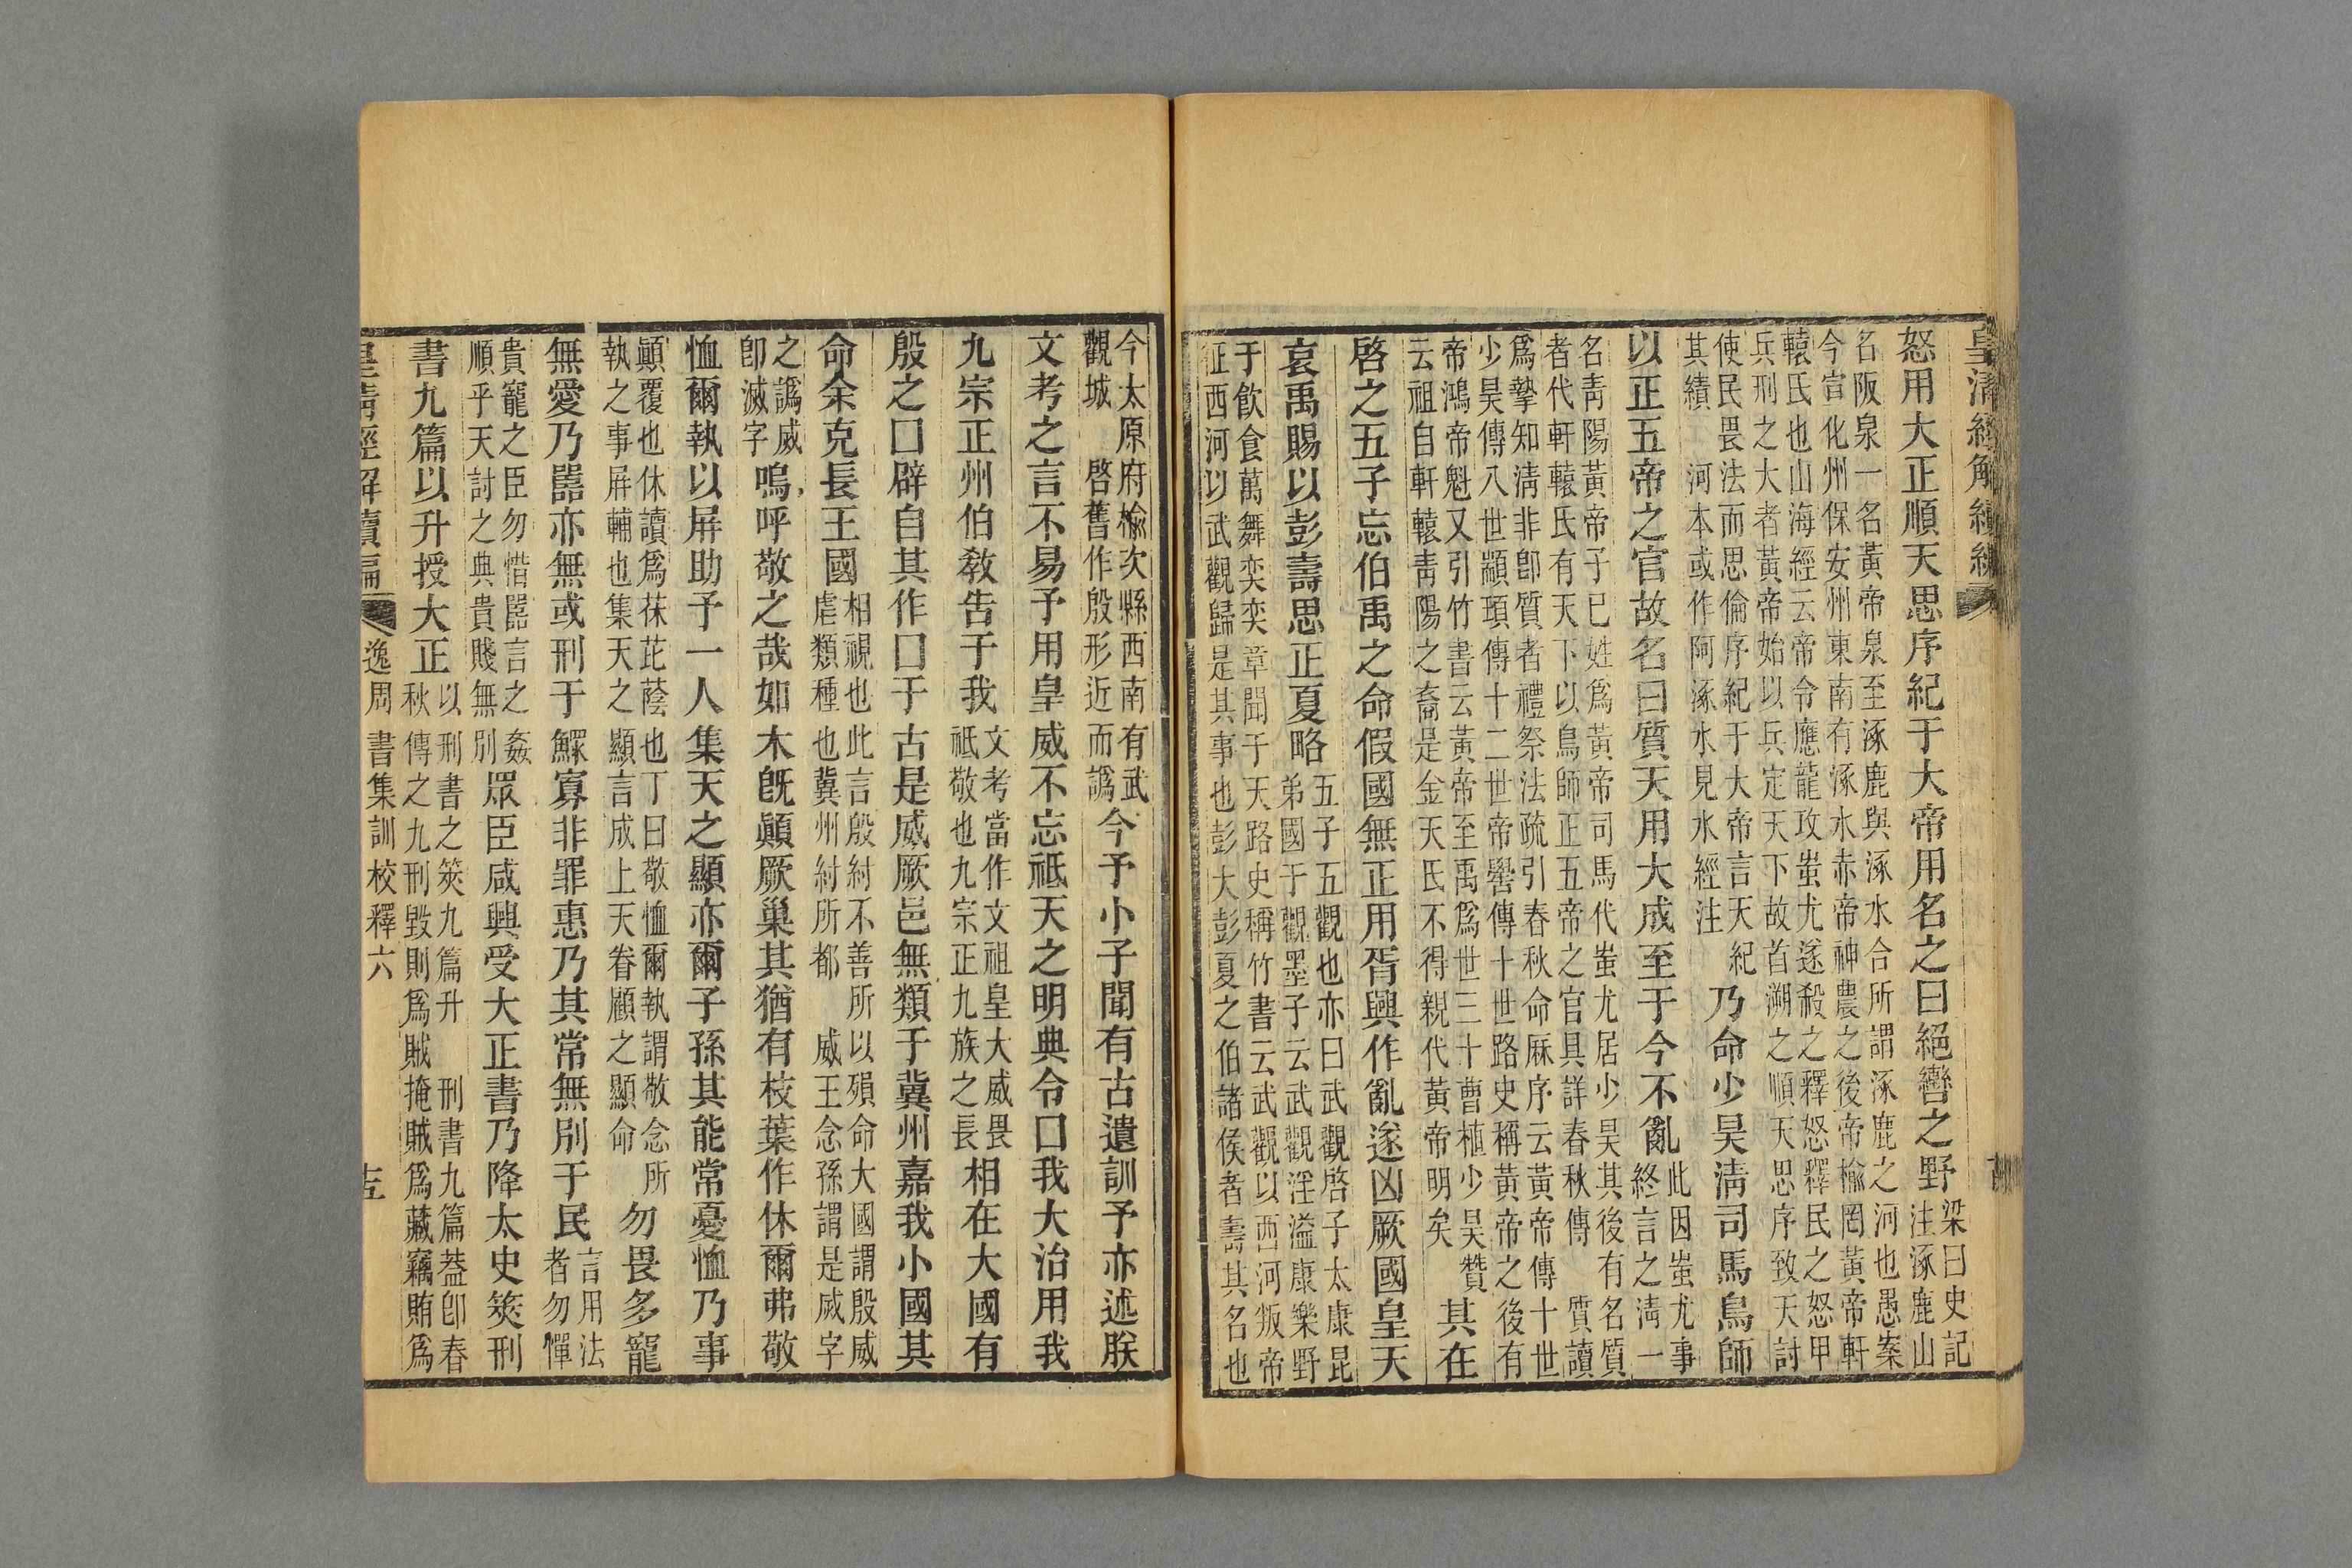 皇清經解續編
怒用大正順天思序紀于大帝用名之曰絕轡之野梁曰史記注涿鹿山
名阪泉一名黃帝泉至涿鹿與涿水合所謂涿鹿之河也愚案
今宣化州保安州東南有涿水赤帝神農之後帝榆罔黃帝軒
轅氏也山海經云帝令應龍攻蚩尤遂殺之釋怒釋民之怒甲
兵刑之大者黃帝始以兵定天下故首溯之順天思序致天討
使民畏法而思倫序紀于大帝言天紀
其績 河本或作阿涿水見水經注乃命少昊淸司馬鳥師
以正五帝之官故名曰質天用大成至于今不亂此因蚩尤事終言之淸一
名靑陽黃帝子已姓爲黃帝司馬代蚩尤居少昊其後有名質
者代軒轅氏有天下以鳥師正五帝之官具詳春秋傳 質讀
爲摯知淸非卽質者禮祭法疏引春秋命厤序云黃帝傳十世
少昊傳八世顓頊傳十二世帝嚳傳十世路史稱黃帝之後有
帝鴻帝魁又引竹書云黃帝至禹爲世三十曹植少昊贊
云祖自軒轅靑陽之裔是金天氏不得親代黃帝明矣其在
啓之五子忘伯禹之命假國無正用胥興作亂遂凶厥國皇天
哀禹賜以彭壽思正夏略五子五觀也亦曰武觀啓子太康昆弟國于觀墨子云武觀淫溢康樂野
于飮食萬舞奕奕章聞于天路史稱竹書云武觀以西河叛帝
征西河以武觀歸是其事也彭大彭夏之伯諸侯者壽其名也
今太原府榆次縣西南有武
觀城 啓舊作殷形近而譌今予小子聞有古遺訓予亦述朕
文考之言不易予用皇威不忘祗天之明典令囗我大治用我
九宗正州伯敎告于我文考當作文祖皇大威畏祗敬也九宗正九族之長相在大國有
殷之囗辟自其作囗于古是威厥邑無類于冀州嘉我小國其
命余克長王國相視也此言殷紂不善所以殞命大國謂殷威虐類種也冀州紂所都 威王念孫謂是烕字
之譌烕
卽滅字嗚呼敬之哉如木旣顚厥巢其猶有枝葉作休爾弗敬
恤爾執以屏助予一人集天之顯亦爾子孫其能常憂恤乃事
顚覆也休讀爲茠芘蔭也丁曰敬恤爾執謂敬念所
執之事屏輔也集天之顯言成上天眷顧之顯命勿畏多寵
無愛乃嚚亦無或刑于鰥寡非罪惠乃其常無別于民言用法者勿憚
貴寵之臣勿惜嚚言之姦
順乎天討之典貴賤無別眾臣咸興受大正書乃降太史筴刑
書九篇以升授大正以刑書之筴九篇升 刑書九篇葢卽春秋傳之九刑毀則爲賊掩賊爲藏竊賄爲
皇淸經解續編
逸周書集訓校釋六
十五